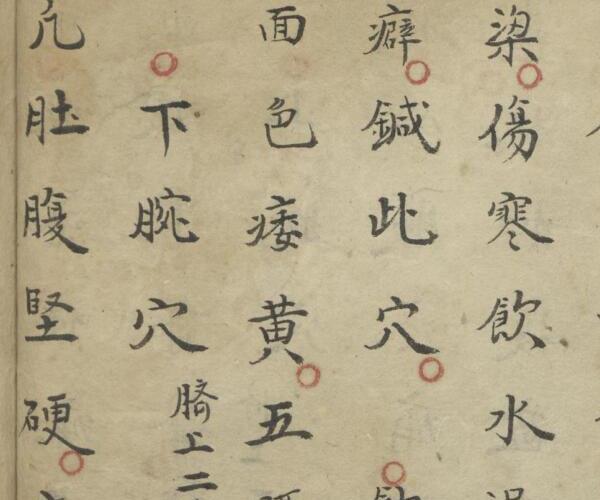 梁傷寒飲水
癖鍼此穴
面色痿黄五
下腕穴臍上二
凢肚腹堅硬